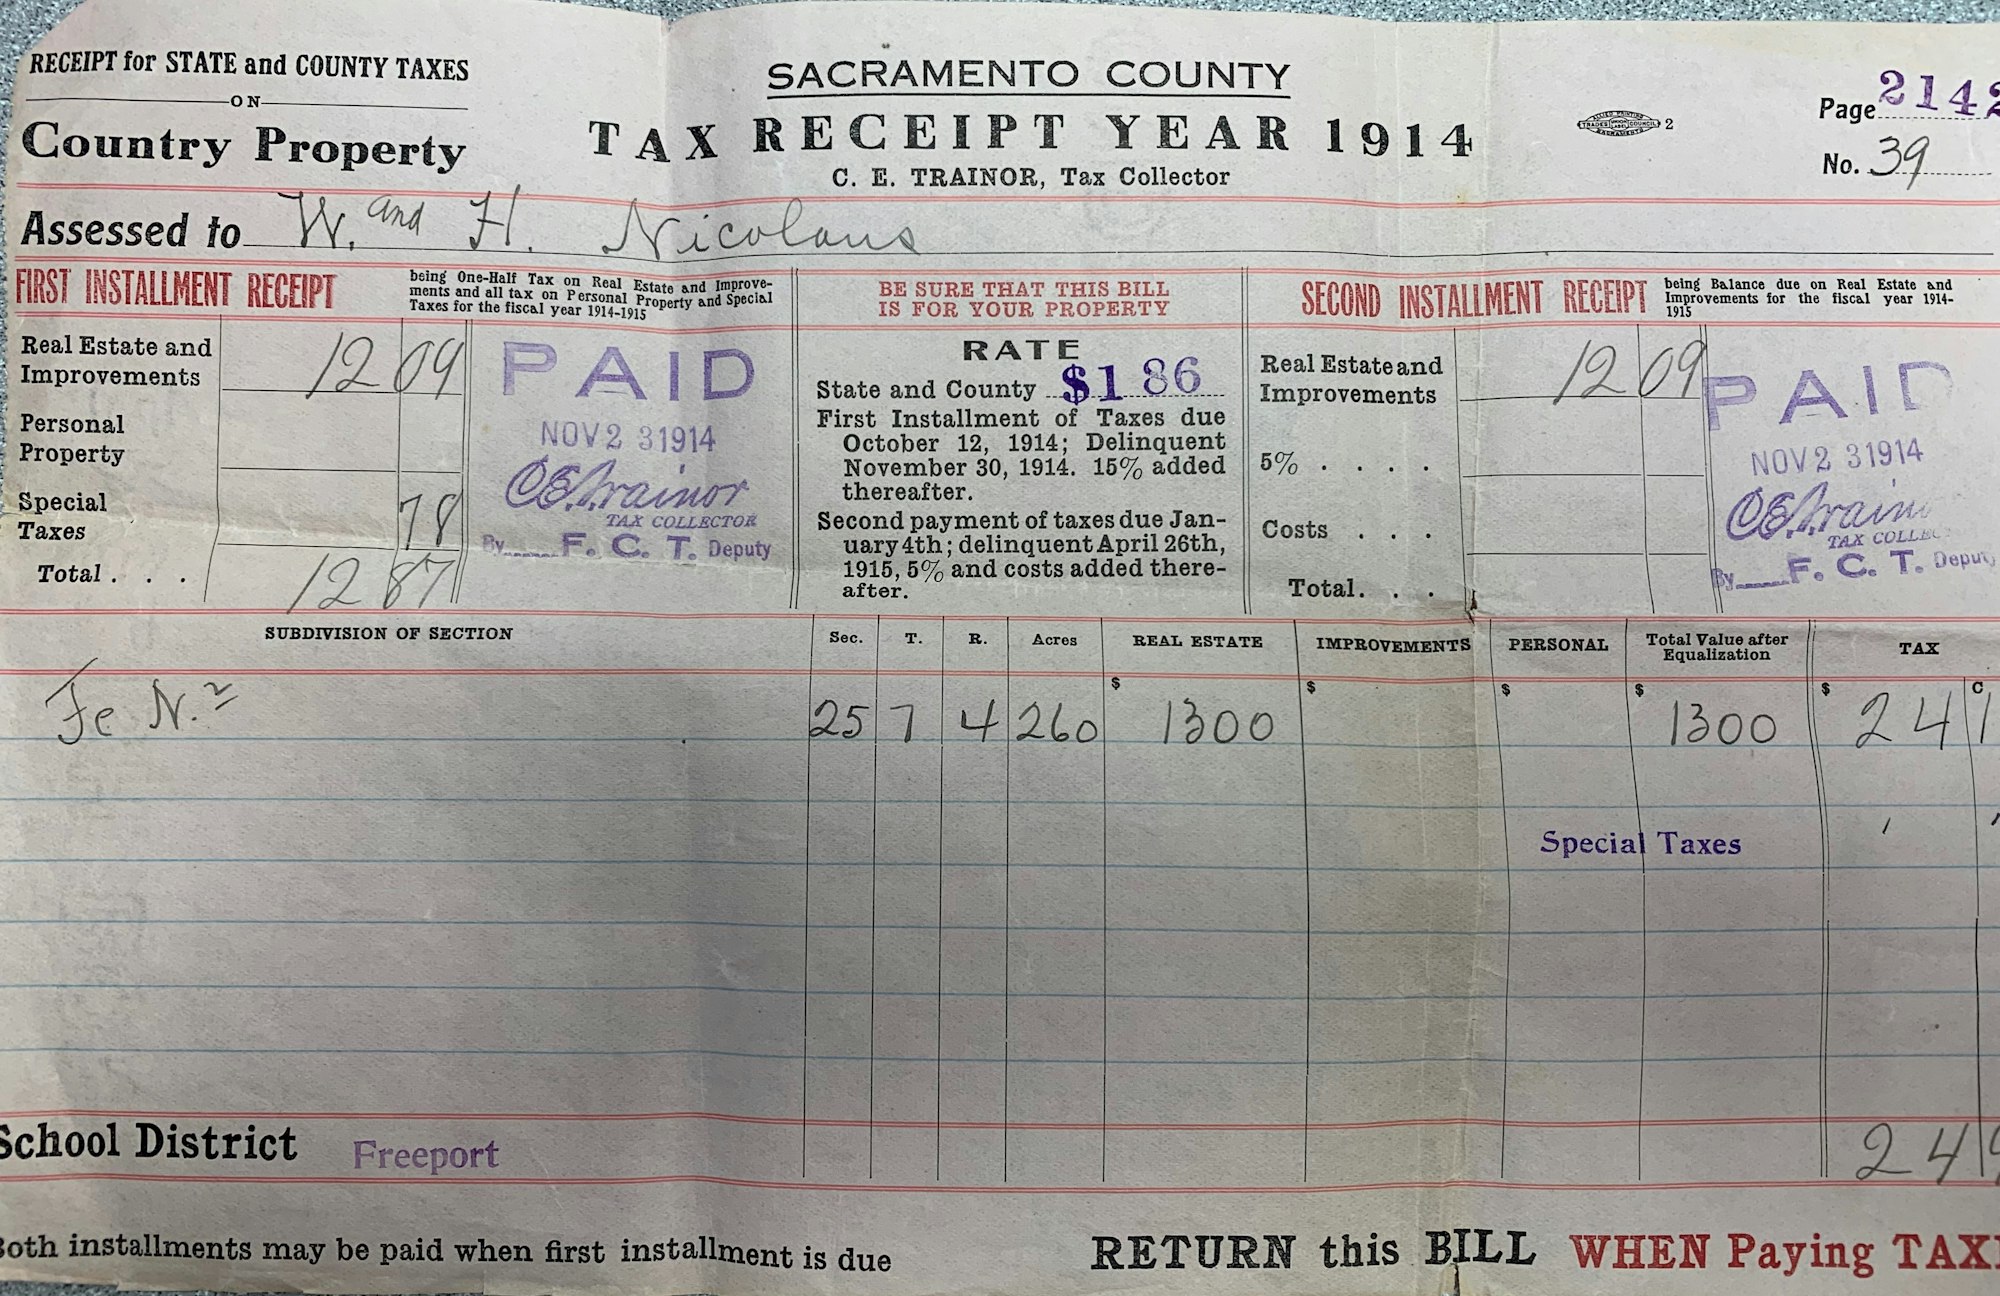 RECEIPT for STATE and COUNTY TAXES
ON
Country Property
SACRAMENTO COUNTY
TAX RECEIPT YEAR 1914
C. E. TRAINOR, Tax Collector
ALLIED PRINTING
TRADES UNION LABEL COUNCIL
SACRAMENTO
2
Page 2142
No. 39
Assessed to W. and H. Nicolaus
FIRST INSTALLMENT RECEIPT
being One-Half Tax on Real Estate and Improve-
ments and all tax on Personal Property and Special
Taxes for the fiscal year 1914-1915
Real Estate and
Improvements 12 09
Personal
Property
Special
Taxes 78
Total . . . 12 87
PAID
NOV 2 3 1914
C E Trainor
TAX COLLECTOR
By F. C. T. Deputy
BE SURE THAT THIS BILL
IS FOR YOUR PROPERTY
RATE
State and County $1 86
First Installment of Taxes due
October 12, 1914; Delinquent
November 30, 1914. 15% added
thereafter.
Second payment of taxes due Jan-
uary 4th; delinquent April 26th,
1915, 5% and costs added there-
after.
SECOND INSTALLMENT RECEIPT
being Balance due on Real Estate and
Improvements for the fiscal year 1914-
1915
Real Estate and
Improvements 12 09
5% . . . .
Costs . . .
Total. . .
PAID
NOV 2 3 1914
C E Train
TAX COLLEC
By F. C. T. Deputy
SUBDIVISION OF SECTION Sec. T. R. Acres REAL ESTATE IMPROVEMENTS PERSONAL Total Value after Equalization TAX
$ $ $ $ $ C
N. 25 7 4 260 1300 1300 24 1
Special Taxes
School District Freeport 24 9
Both installments may be paid when first installment is due
RETURN this BILL WHEN Paying TAX